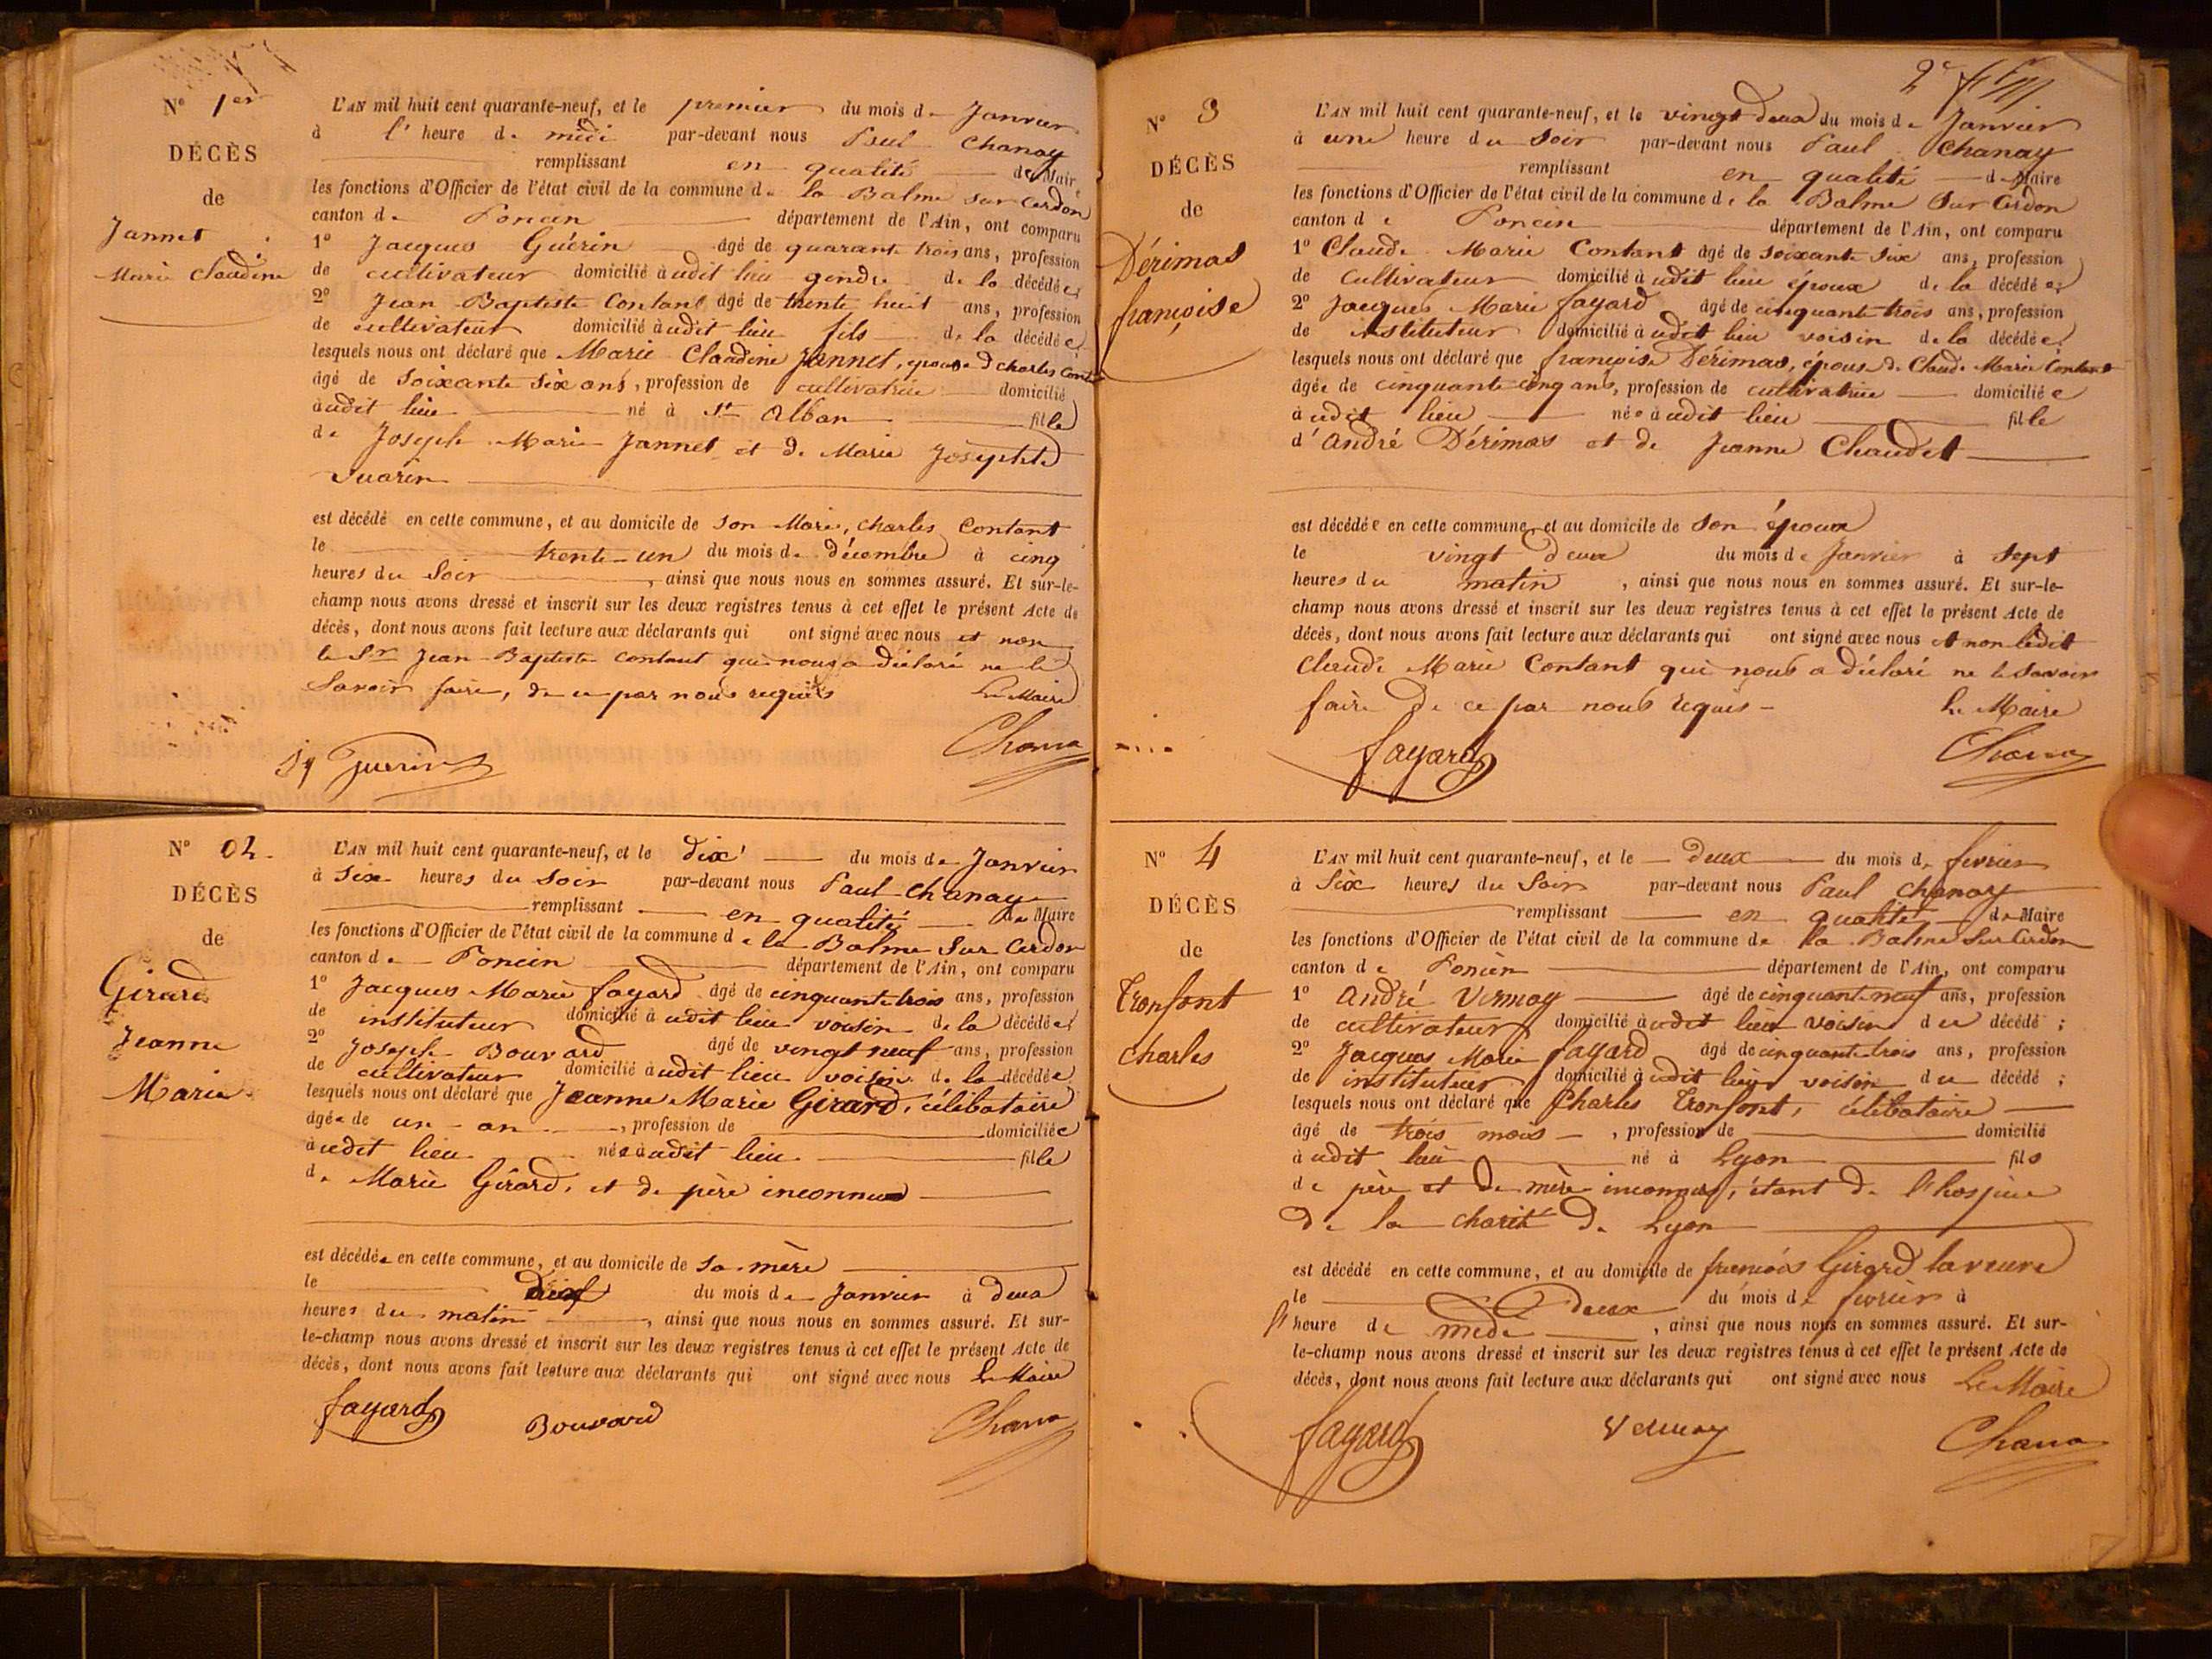 N° 1er
DÉCÈS
de
Jannet
Marie Claudine
L'AN mil huit cent quarante-neuf, et le premier du mois de Janvier
à l'heure de midi par-devant nous Paul Chanay
remplissant en qualité de Maire
les fonctions d'Officier de l'état civil de la commune de la Balme sur Cerdon
canton de Poncin département de l'Ain, ont comparu
1° Jacques Guérin âgé de quarante trois ans, profession
de cultivateur domicilié audit lieu gendre de la décédée;
2° Jean Baptiste Contant âgé de trente huit ans, profession
de cultivateur domicilié audit lieu fils de la décédée;
lesquels nous ont déclaré que Marie Claudine Jannet, épouse d charles Cont
âgé de soixante six ans, profession de cultivatrice domicilié
audit lieu né à St Alban fille
de Joseph Marie Jannet et de Marie Josephte
Suarin
est décédé en cette commune, et au domicile de son Mari, charles Contant
le trente-un du mois de décembre à cinq
heures du Soir, ainsi que nous nous en sommes assuré. Et sur-le-
champ nous avons dressé et inscrit sur les deux registres tenus à cet effet le présent Acte de
décès, dont nous avons fait lecture aux déclarants qui ont signé avec nous et non
le Sr Jean-Baptiste Contant qui nous a déclaré ne le
Savoir faire, de ce par nous requis Le Maire
Jq Guerin Chana
N° 02.
DÉCÈS
de
Girard
Jeanne
Marie
L'AN mil huit cent quarante-neuf, et le dix du mois de Janvier
à six heures du Soir par-devant nous Paul Chanay
remplissant en qualité de Maire
les fonctions d'Officier de l'état civil de la commune de la Balme Sur Cerdon
canton de Poncin département de l'Ain, ont comparu
1° Jacques Marie fayard âgé de cinquante trois ans, profession
de instituteur domicilié audit lieu voisin de la décédée;
2° Joseph Bouvard âgé de vingt neuf ans, profession
de cultivateur domicilié audit lieu voisin de la décédée
lesquels nous ont déclaré que Jeanne Marie Girard, célibataire
âgée de un an, profession de domiciliée
audit lieu née audit lieu fille
de Marie Girard, et de père inconnu
est décédée en cette commune, et au domicile de sa mère
le dix du mois de Janvier à deux
heures du matin, ainsi que nous nous en sommes assuré. Et sur-
le-champ nous avons dressé et inscrit sur les deux registres tenus à cet effet le présent Acte de
décès, dont nous avons fait lecture aux déclarants qui ont signé avec nous Le Maire
fayard Bouvard Chana
2e
N° 3
DÉCÈS
de
Dérimas
françoise
L'AN mil huit cent quarante-neuf, et le vingt deux du mois de Janvier
à une heure du Soir par-devant nous Paul Chanay
remplissant en qualité de Maire
les fonctions d'Officier de l'état civil de la commune de la Balme Sur Cerdon
canton de Poncin département de l'Ain, ont comparu
1° Claude Marie Contant âgé de soixante six ans, profession
de Cultivateur domicilié audit lieu époux de la décédée;
2° Jacques Marie fayard âgé de cinquante trois ans, profession
de instituteur domicilié audit lieu voisin de la décédée
lesquels nous ont déclaré que françoise Dérimas, épouse de Claude Marie Contant
âgée de cinquante cinq ans, profession de cultivatrice domiciliée
audit lieu née audit lieu fille
d'André Dérimas et de Jeanne Chaudet
est décédée en cette commune, et au domicile de son époux
le vingt deux du mois de Janvier à sept
heures du matin, ainsi que nous nous en sommes assuré. Et sur-le-
champ nous avons dressé et inscrit sur les deux registres tenus à cet effet le présent Acte de
décès, dont nous avons fait lecture aux déclarants qui ont signé avec nous et non ledit
Claude Marie Contant qui nous a déclaré ne le savoir
faire De ce par nous requis - Le Maire
fayard Chana
N° 4
DÉCÈS
de
Tronfont
charles
L'AN mil huit cent quarante-neuf, et le deux du mois de fevrier
à six heures du Soir par-devant nous Paul Chanay
remplissant en qualité de Maire
les fonctions d'Officier de l'état civil de la commune de la Balme Sur Cerdon
canton de Poncin département de l'Ain, ont comparu
1° André Vernay âgé de cinquante neuf ans, profession
de cultivateur domicilié audit lieu voisin du décédé;
2° Jacques Marie fayard âgé de cinquante trois ans, profession
de instituteur domicilié audit lieu voisin du décédé;
lesquels nous ont déclaré que Charles Tronfont, célibataire
âgé de trois mois, profession de domicilié
audit lieu né à Lyon fils
de père et de mère inconnus, étant de l'hospice
De la charité de Lyon
est décédé en cette commune, et au domicile de françois Girard laveure
le deux du mois de fevrier à
l'heure de midi, ainsi que nous nous en sommes assuré. Et sur-
le-champ nous avons dressé et inscrit sur les deux registres tenus à cet effet le présent Acte de
décès, dont nous avons fait lecture aux déclarants qui ont signé avec nous Le Maire
fayard Vernay Chana